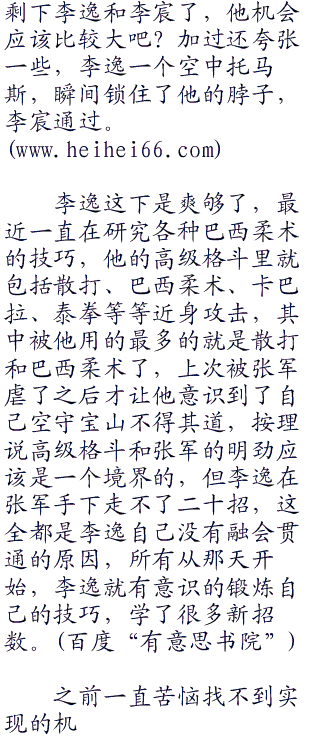 剩下李逸和李宸了，他机会
应该比较大吧？加过还夸张
一些，李逸一个空中托马
斯，瞬间锁住了他的脖子，
李宸通过。
(www.heihei66.com)
李逸这下是爽够了，最
近一直在研究各种巴西柔术
的技巧，他的高级格斗里就
包括散打、巴西柔术、卡巴
拉、泰拳等等近身攻击，其
中被他用的最多的就是散打
和巴西柔术了，上次被张军
虐了之后才让他意识到了自
己空守宝山不得其道，按理
说高级格斗和张军的明劲应
该是一个境界的，但李逸在
张军手下走不了二十招，这
全都是李逸自己没有融会贯
通的原因，所有从那天开
始，李逸就有意识的锻炼自
己的技巧，学了很多新招
数。(百度“有意思书院”)
之前一直苦恼找不到实
现的机